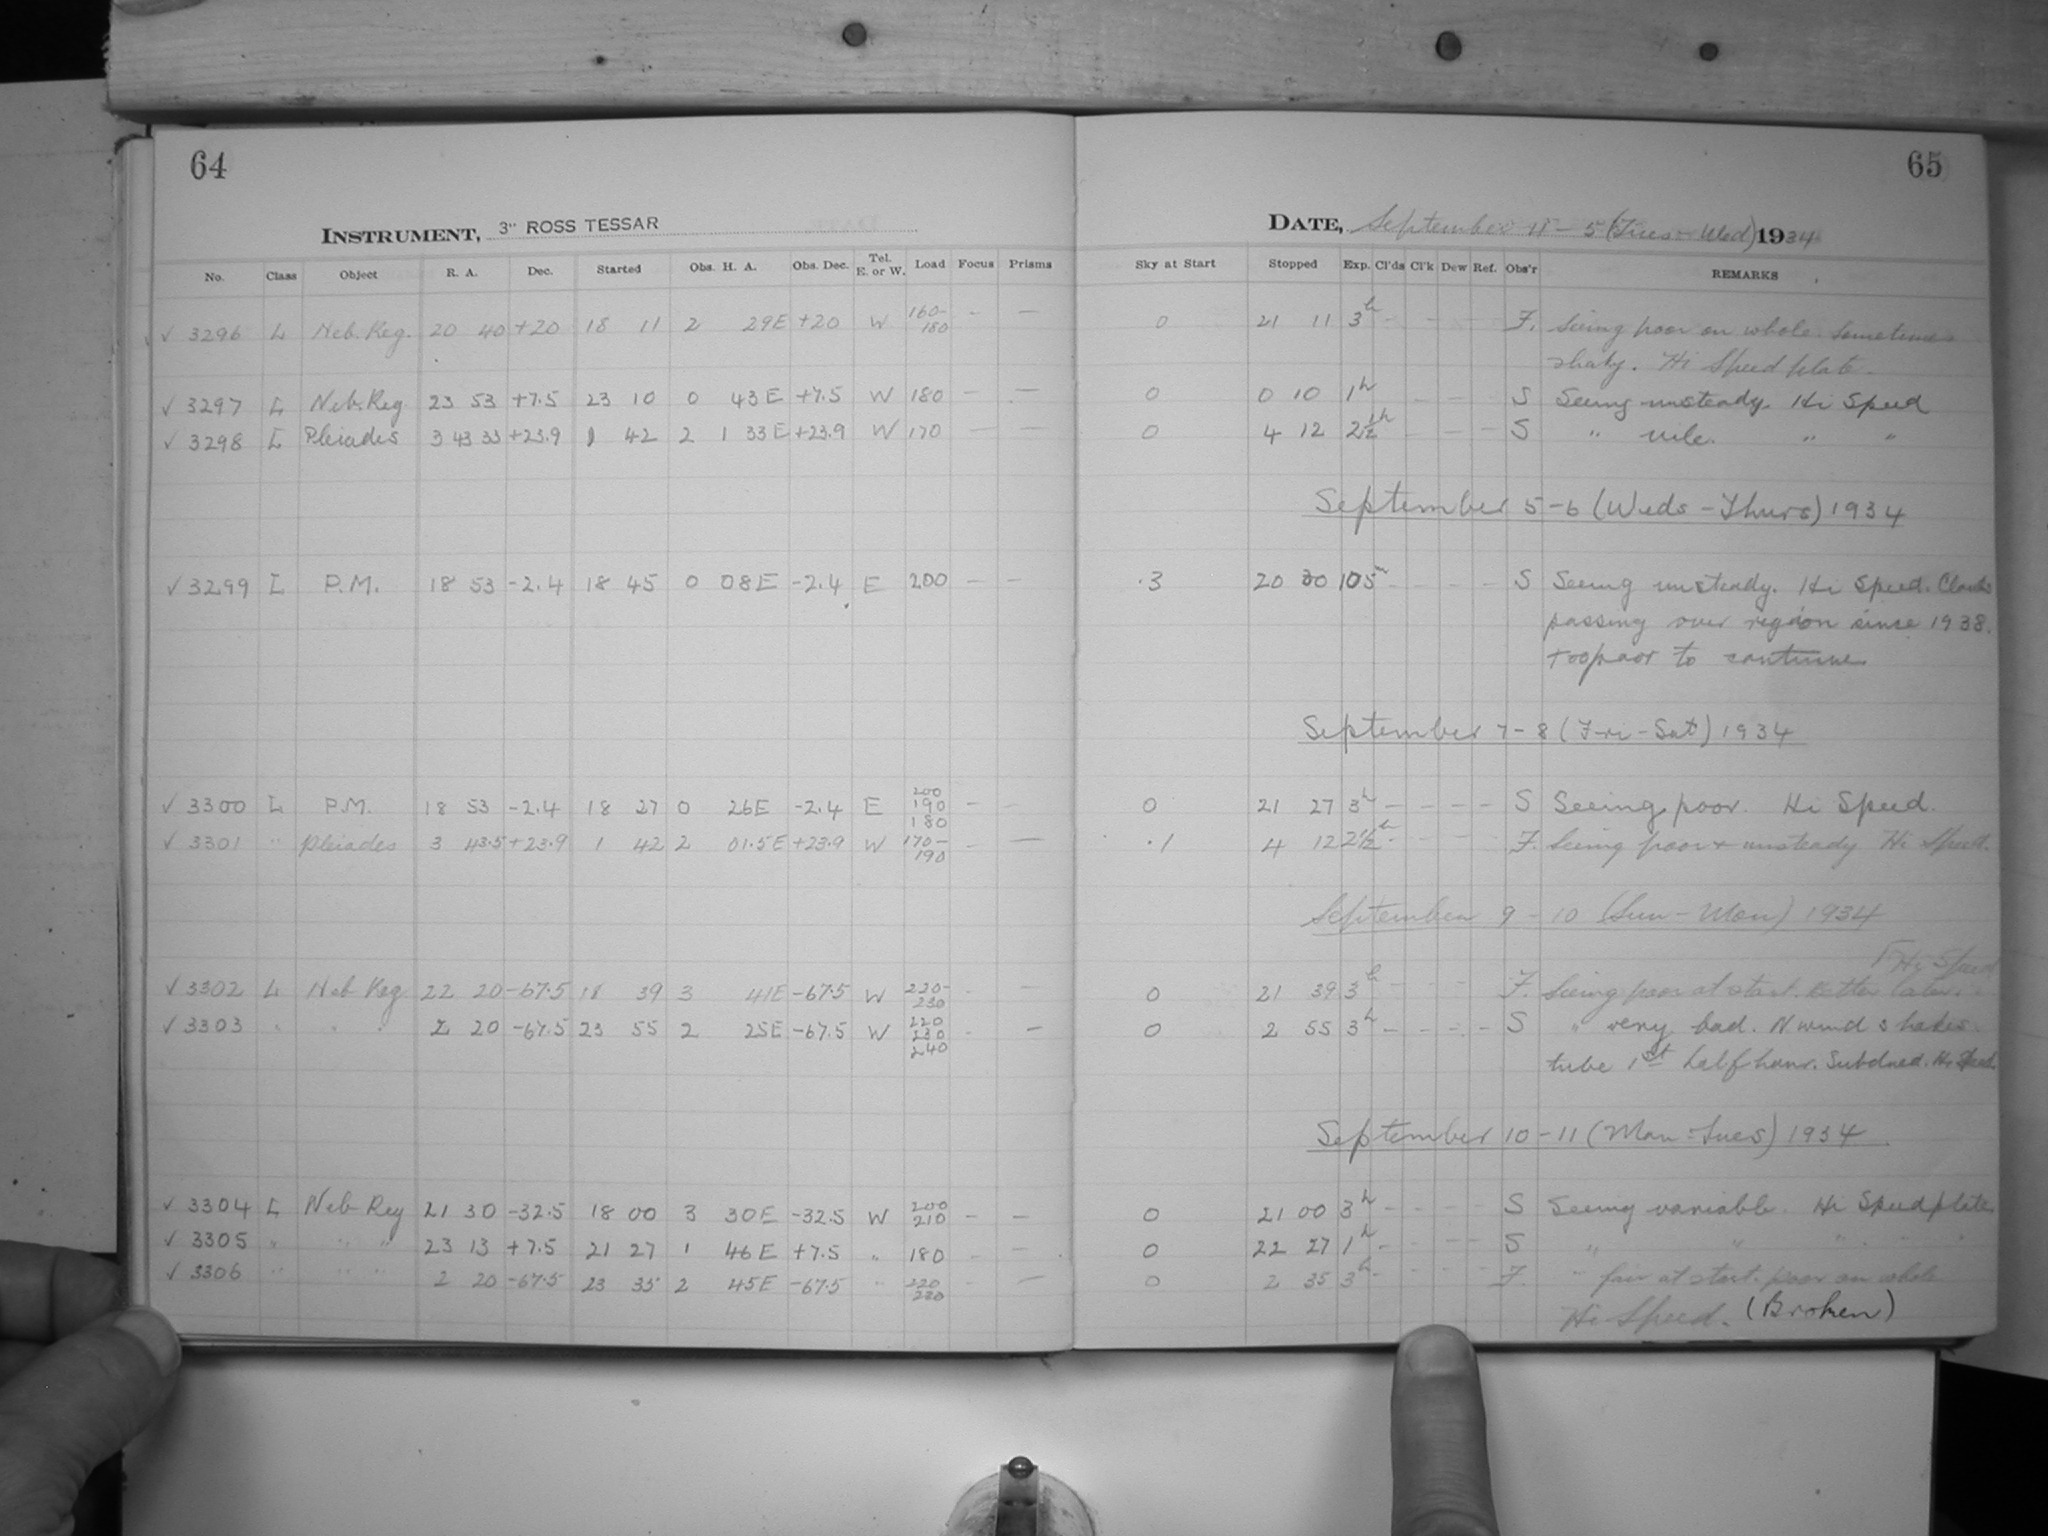 64
INSTRUMENT, 3" ROSS TESSAR
No. Class Object R. A. Dec. Started Obs. H. A. Obs. Dec. Tel. E. or W. Load Focus Prisms
✓ 3296 L Neb. Reg. 20 40 +20 18 11 2 29E +20 W 160- 180 - -
✓ 3297 L Neb. Reg 23 53 +7.5 23 10 0 43E +7.5 W 180 - -
✓ 3298 L Pleiades 3 43 33 +23.9 1 42 2 1 33E +23.9 W 170 - -
✓ 3299 L P.M. 18 53 -2.4 18 45 0 08E -2.4 E 200 - -
✓ 3300 L P.M. 18 53 -2.4 18 27 0 26E -2.4 E 200 190 180 - -
✓ 3301 " Pleiades 3 43.5 +23.9 1 42 2 01.5E +23.9 W 170- 190 - -
✓ 3302 L Neb Reg 22 20 -67.5 18 39 3 41E -67.5 W 220- 230
✓ 3303 " " " 2 20 -67.5 23 55 2 25E -67.5 W 220 230 240 - -
✓ 3304 L Neb Reg 21 30 -32.5 18 00 3 30E -32.5 W 200 210 - -
✓ 3305 " " " 23 13 +7.5 21 27 1 46E +7.5 " 180 - -
✓ 3306 " " " 2 20 -67.5 23 35 2 45E -67.5 " 220 230 - -
65
DATE, September 4 - 5 (Tues - Wed) 1934
Sky at Start Stopped Exp. Cl'ds Cl'k Dew Ref. Obs'r REMARKS
0 21 11 3h - - - - F. Seeing poor on whole. Sometimes
shaky. Hi Speed plate.
0 0 10 1h - - - - S Seeing unsteady. Hi Speed
0 4 12 2½h - - - - S " vile. " "
September 5-6 (Weds - Thurs) 1934
.3 20 30 105m - - - - S Seeing unsteady. Hi Speed. Clouds
passing over region since 1938.
too poor to continue
September 7-8 (Fri - Sat) 1934
0 21 27 3h - - - - S Seeing poor. Hi Speed.
.1 4 12 2½h - - - - F. Seeing poor + unsteady Hi Speed.
September 9 - 10 (Sun - Mon) 1934
Hi Speed
0 21 39 3h - - - - F. Seeing poor at start. Better later.
0 2 55 3h - - - - S " very bad. N. wind shakes
tube 1st half hour. Subdued. Hi Speed.
September 10 - 11 (Mon - Tues) 1934
0 21 00 3h - - - - S Seeing variable. Hi Speed plate
0 22 27 1h - - - - S " " " " "
0 2 35 3h - - - - F. " fair at start. poor on whole
Hi Speed. (Broken)